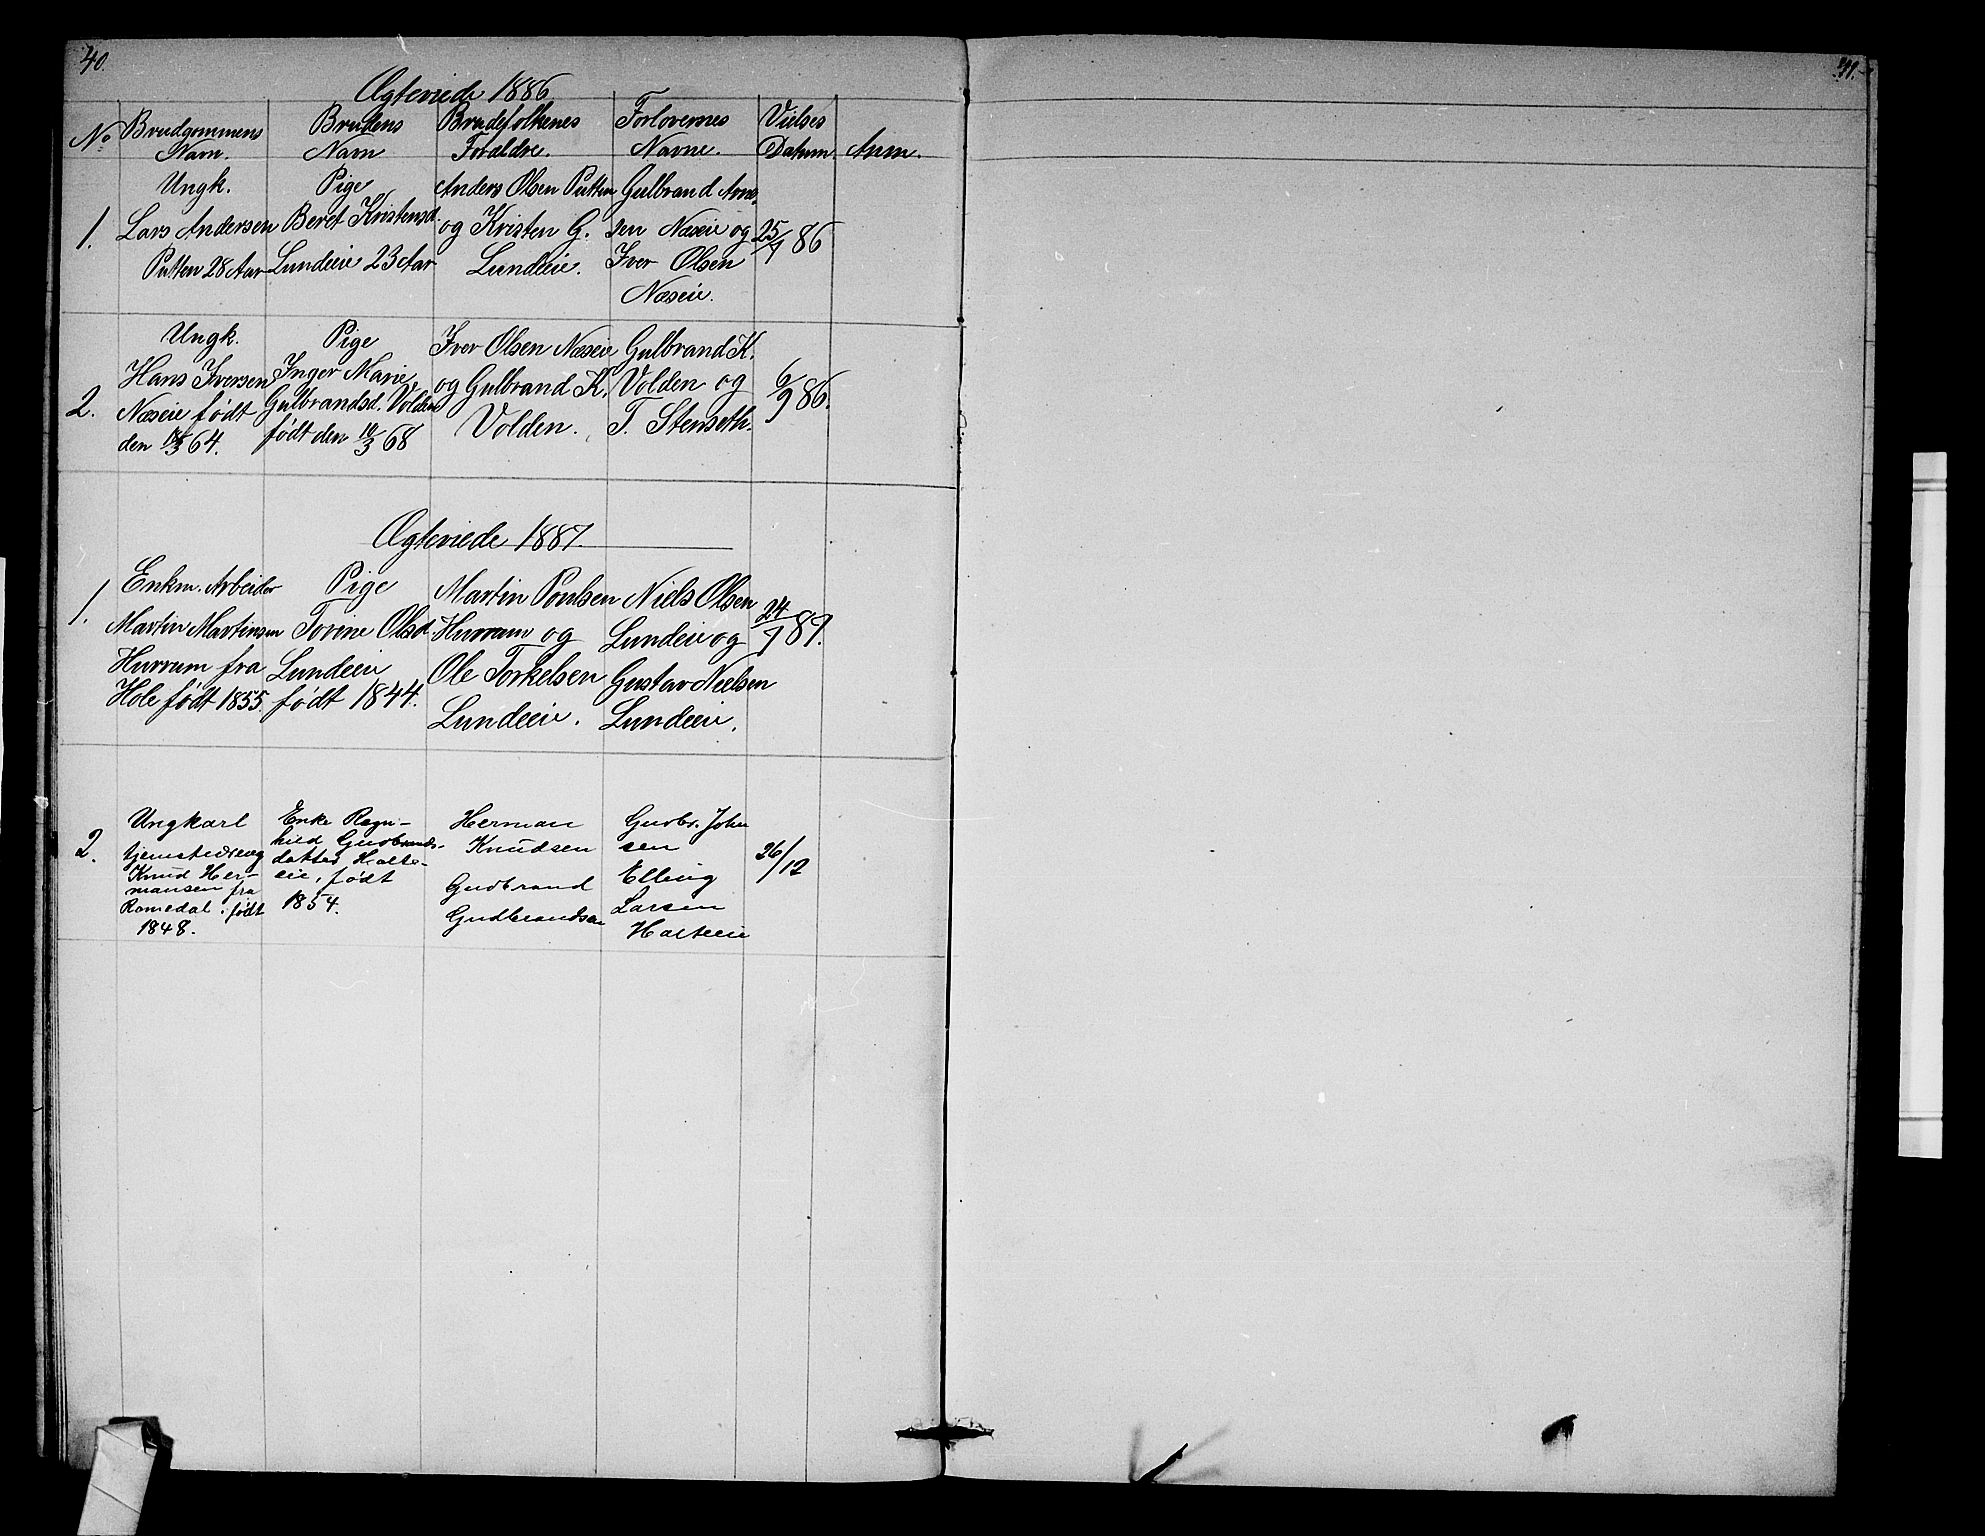 40.
41.
Ægteviede 1886
No Brudgommens Navn. Brudens Navn Brudefolkenes Foreldre. Forlovernes Navne. Vielses Datum. Anm.
1.
Ungk.
Lars Andersen
Putten 28 Aar
Pige
Beret Kristensd.
Lundeie 23 Aar
Anders Olsen Putten
og Kristen G.
Lundeie.
Gulbrand Arne
sen Næseie og
Iver Olsen
Næseie.
25/7 86
2.
Ungk.
Hans Iversen
Næseie født
den 18/3 64.
Pige
Inger Marie
Gulbrandsd. Volden
født den 10/3 68
Iver Olsen Næseie
og Gulbrand K.
Volden.
Gulbrand K.
Volden og
T. Stenseth.
6/9 86.
Ægteviede 1887.
1.
Enkm. Arbeider
Martin Martinsen
Hurrum fra
Hole født 1855
Pige
Torine Olsd
Lundeeie
født 1844.
Martin Poulsen
Hurrum og
Ole Torkelsen
Lundeeie.
Niels Olsen
Lundeie og
Gustav Nielsen
Lundeeie.
24/7 87.
2.
Ungkarl
Knud Her-
mansen fra
Romedal; født
1848.
Enke Ragn-
hild Gudbrands-
datter Halte-
eie, født
1854.
Herman
Knudsen
Gudbrand
Gudbrandsen
Gudbr. John
sen
Elling
Larsen
Halteeie
26/12